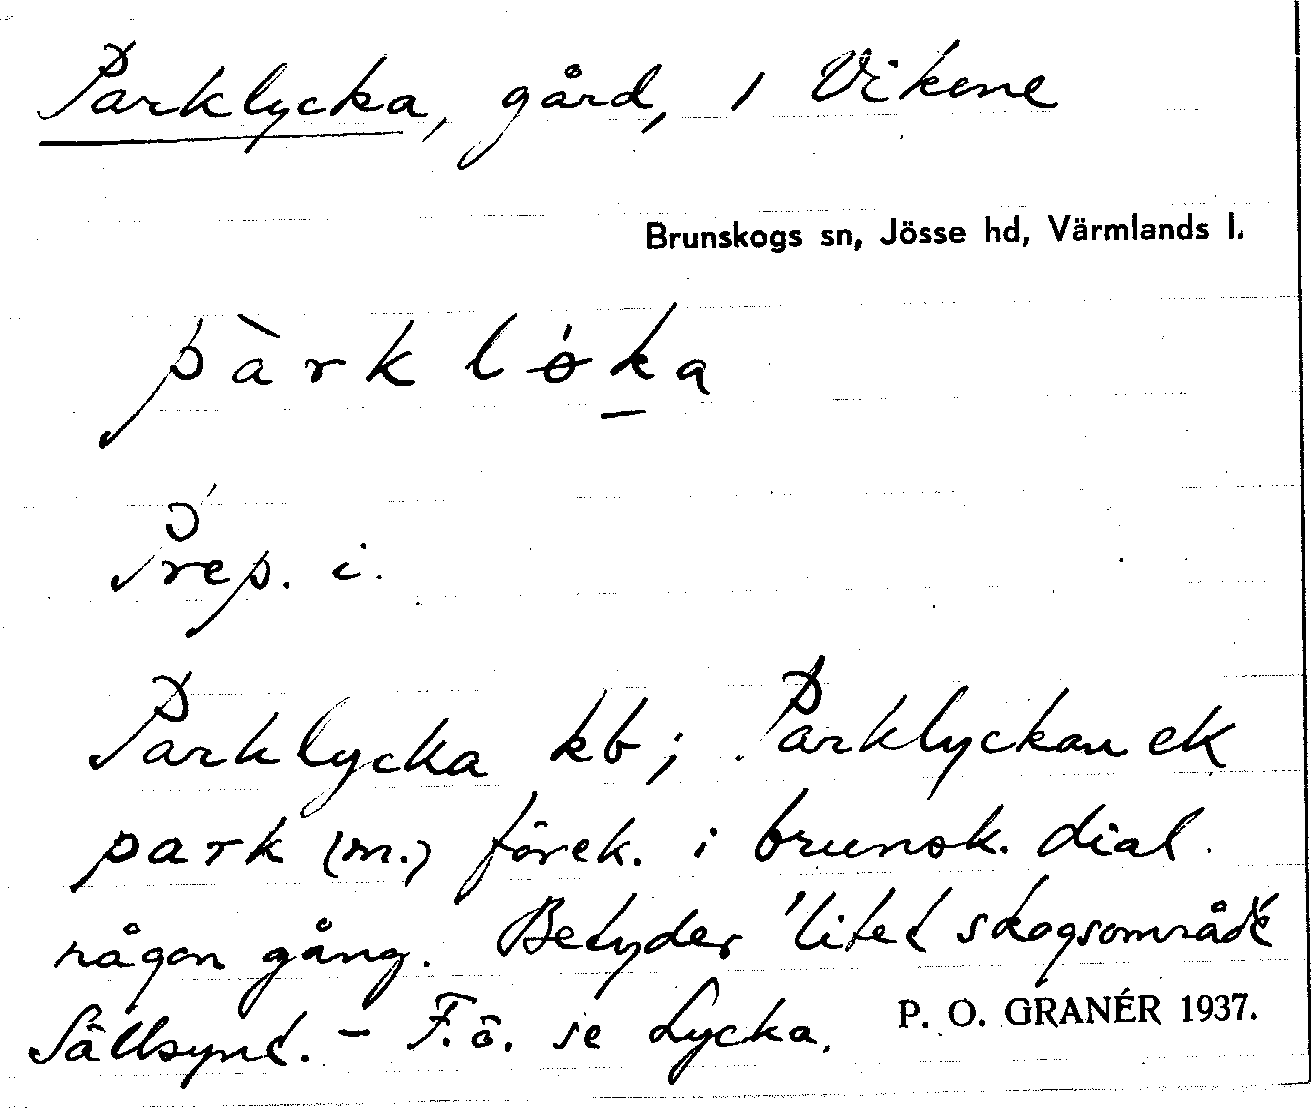 Parklycka, gård, i Vikene
Brunskogs sn, Jösse hd, Värmlands l.
pàrkløka
Prep. i.
Parklycka kb; Parklyckan ek
park (m.) förek. i brunsk. dial.
någon gång. Betyder 'litet skogsområde'
Sällsynt. - F.ö. se Lycka.
P. O. GRANÉR 1937.